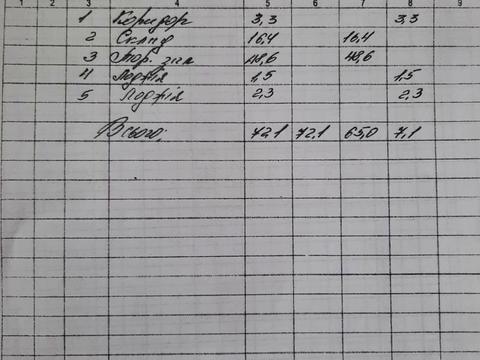 1 2 3 4 5 6 7 8 9
1 Коридор 3,3 3,3
2 Склад 16,4 16,4
3 Тор. зал 48,6 48,6
4 Лоджія 1,5 1,5
5 Лоджія 2,3 2,3
Всього: 72,1 72,1 65,0 7,1